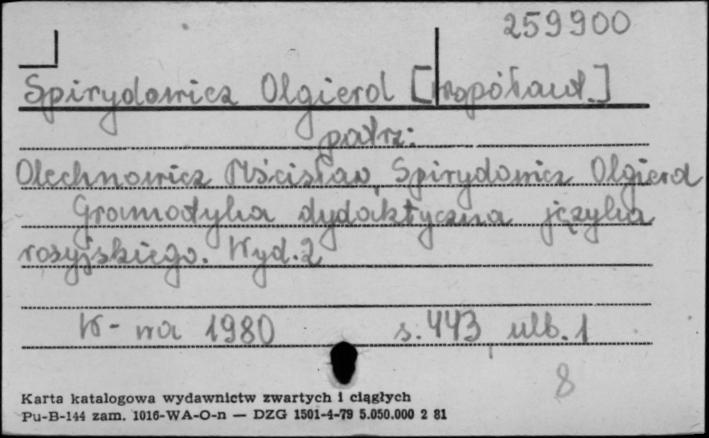 259900
Spirydowicz Olgierd [współaut.]
patrz:
Olechnowicz Mścisław, Spirydowicz Olgierd
Gramatyka dydaktyczna języka
rosyjskiego. Wyd. 2
W-wa 1980 s. 443, ulb. 1
8
Karta katalogowa wydawnictw zwartych i ciągłych
Pu-B-144 zam. 1016-WA-O-n — DZG 1501-4-79 5.050.000 2 81